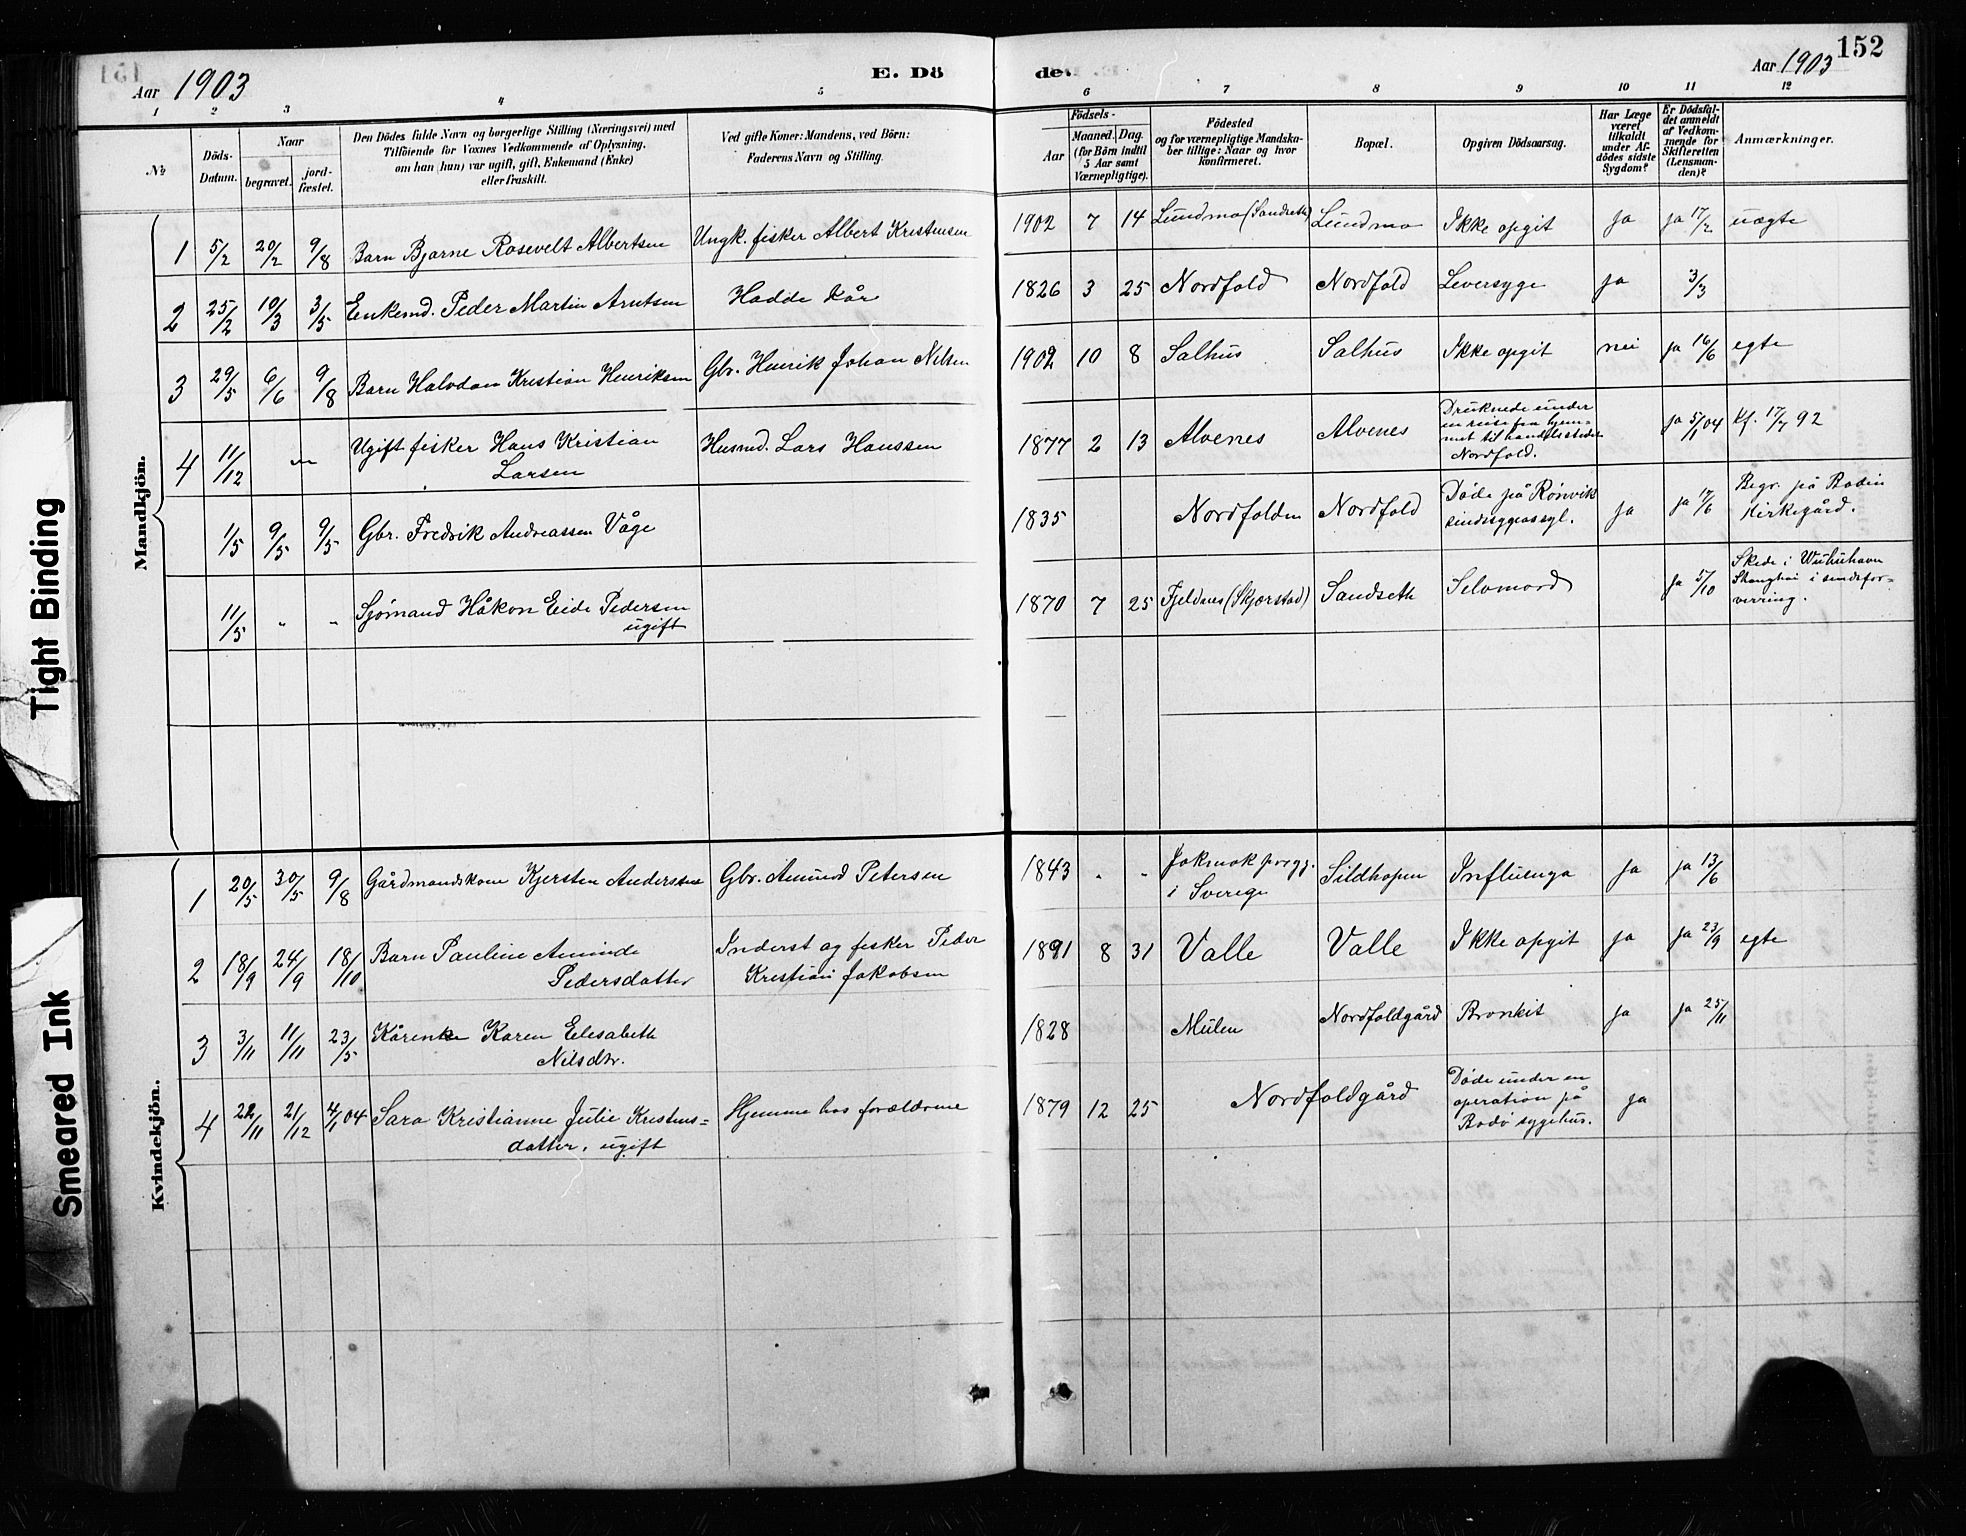 Aar 1903
E. Dö
de.
Aar 1903
152
1 2 3 4 5 6 7 8 9 10 11 12
№
Döds-
Datum.
Naar
begravet.
jord-
fæstet.
Den Dödes fulde Navn og borgerlige Stilling (Næringsvei) med
Tilföiende for Voxnes Vedkommende af Oplysning,
om han (hun) var ugift, gift, Enkemand (Enke)
eller fraskilt.
Ved gifte Koner: Mandens, ved Börn:
Faderens Navn og Stilling.
Födsels-
Aar
Maaned. Dag.
(for Börn indtil
5 Aar samt
Værnepligtige).
Födested
og for værnepligtige Mandska-
ber tillige: Naar og hvor
konfirmeret.
Bopæl.
Opgiven Dödsaarsag.
Har Læge
været
tilkaldt
under Af-
dödes sidste
Sygdom?
Er Dödsfal-
det anmeldt
af Vedkom-
mende for
Skifteretten
(Lensman-
den)?
Anmærkninger.
Mandkjön.
1 5/2 20/2 9/8 Barn Bjarne Rosevelt Albertsen Ungk. fisker Albert Kristensen 1902 7 14 Lundmo (Sandseth) Lundmo Ikke opgit ja ja 17/2 uægte
2 25/2 10/3 3/5 Enkemd. Peder Martin Arntsen Hadde kår 1826 3 25 Nordfold Nordfold Leversyge ja 3/3
3 29/5 6/6 9/8 Barn Halvdan Kristian Henriksen Gbr. Henrik Johan Nilsen 1902 10 8 Salhus Salhus Ikke opgit nei ja 16/6 egte
4 11/12 Ugift fisker Hans Kristian
Larsen
Husmd. Lars Hanssen 1877 2 13 Alvenes Alvenes Druknede under
en reise fra hjem-
met til handelsstedet
Nordfold.
ja 5/1 04 Kf. 17/7 92
1/5 9/5 9/5 Gbr. Fredrik Andreassen Våge 1835 Nordfolden Nordfold Døde på Rønvik
sindssygeasyl.
ja ja 17/6 Begr. på Bodin
kirkegård.
11/5 " " Sjømand Håkon Eide Pedersen
ugift
1870 7 25 Fjeldnes (Skjerstad) Sandseth Selvmord ja 5/10 Skede i Wuhuhavn
Shanghai i sindsfor-
virring.
Kvindekjön.
1 20/5 30/5 9/8 Gårdmandskone Kjersten Andersen Gbr. Amund Petersen 1843 " " Jokmok prgj.
i Sverige
Sildhopen Influenza ja ja 13/6
2 18/9 24/9 18/10 Barn Pauline Aminde
Pedersdatter
Inderst og fisker Peder
Kristian Jakobsen
1891 8 31 Valle Valle Ikke opgit ja ja 23/9 egte
3 3/11 11/11 23/5 Kårenke Karen Elesabeth
Nilsdtr.
1828 Mulen Nordfoldgård Bronkit ja ja 25/11
4 22/11 21/12 4/1 04 Sara Kristianne Julie Kristens=
datter, ugift
Hjemme hos forældrene 1879 12 25 Nordfoldgård Døde under en
operation på
Bodø sygehus.
ja
Tight Binding
Smeared Ink